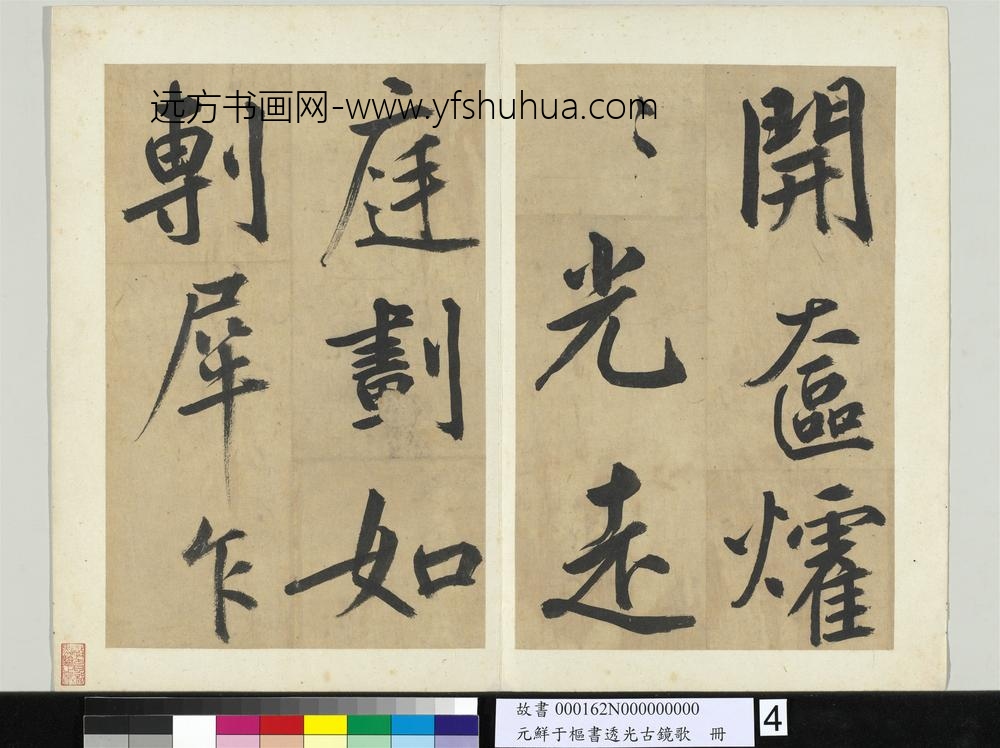 远方书画网-www.yfshuhua.com
開奩㸌
〻光走
庭劃如
剸犀乍
故書 000162N000000000
元鮮于樞書透光古鏡歌 冊
4